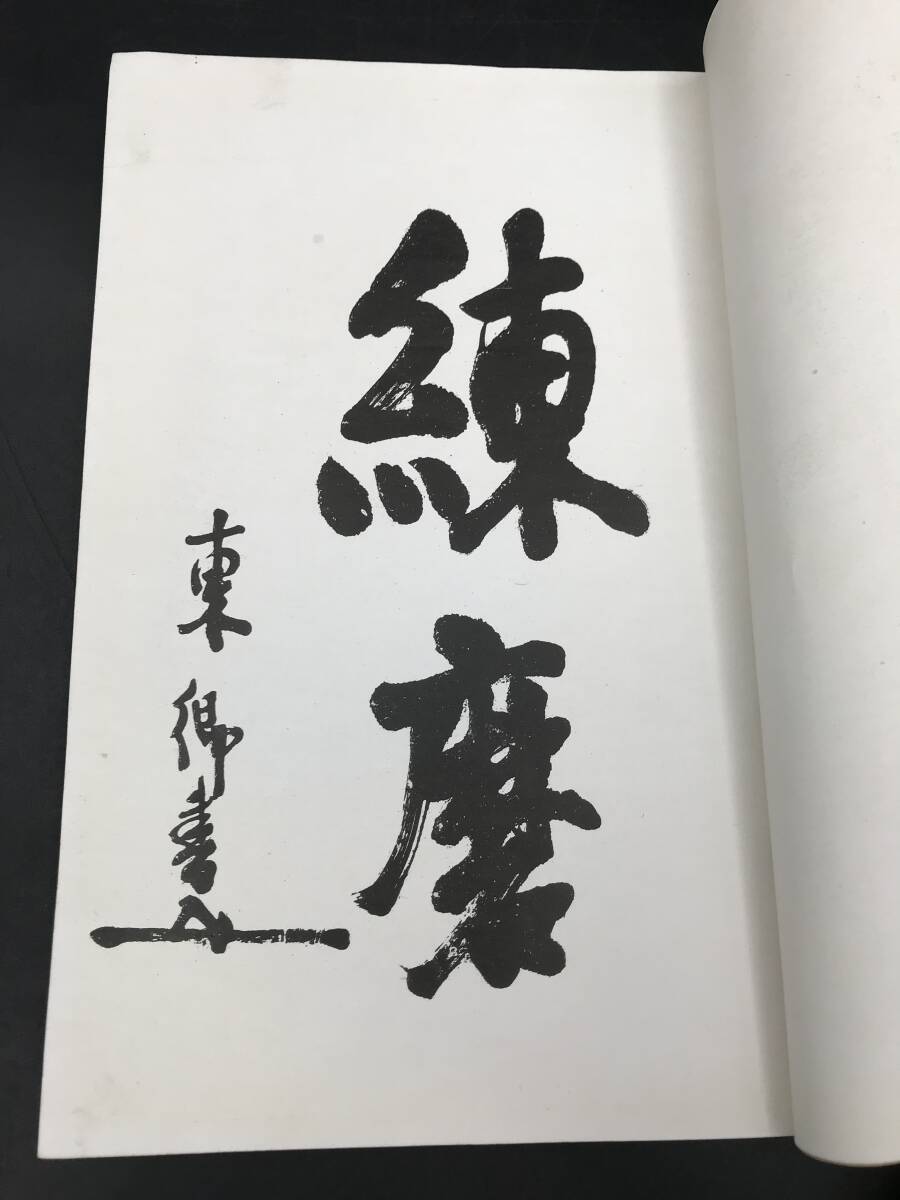 練磨
東郷書